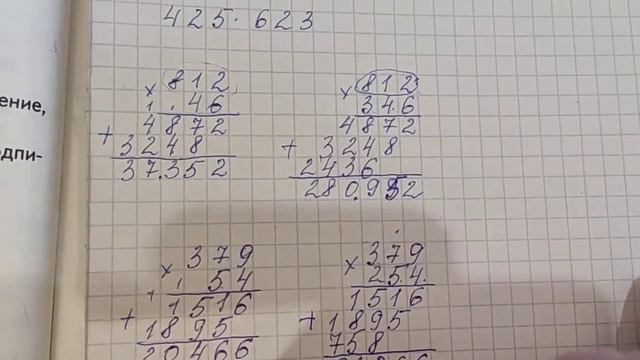 425 · 623
ение,
дпи-
× 812
46
4872
+ 3248
37.352
× 812
346
4872
+ 3248
2436
280.952
× 379
54
1516
+ 1895
20466
× 379
254
1516
+ 1895
758